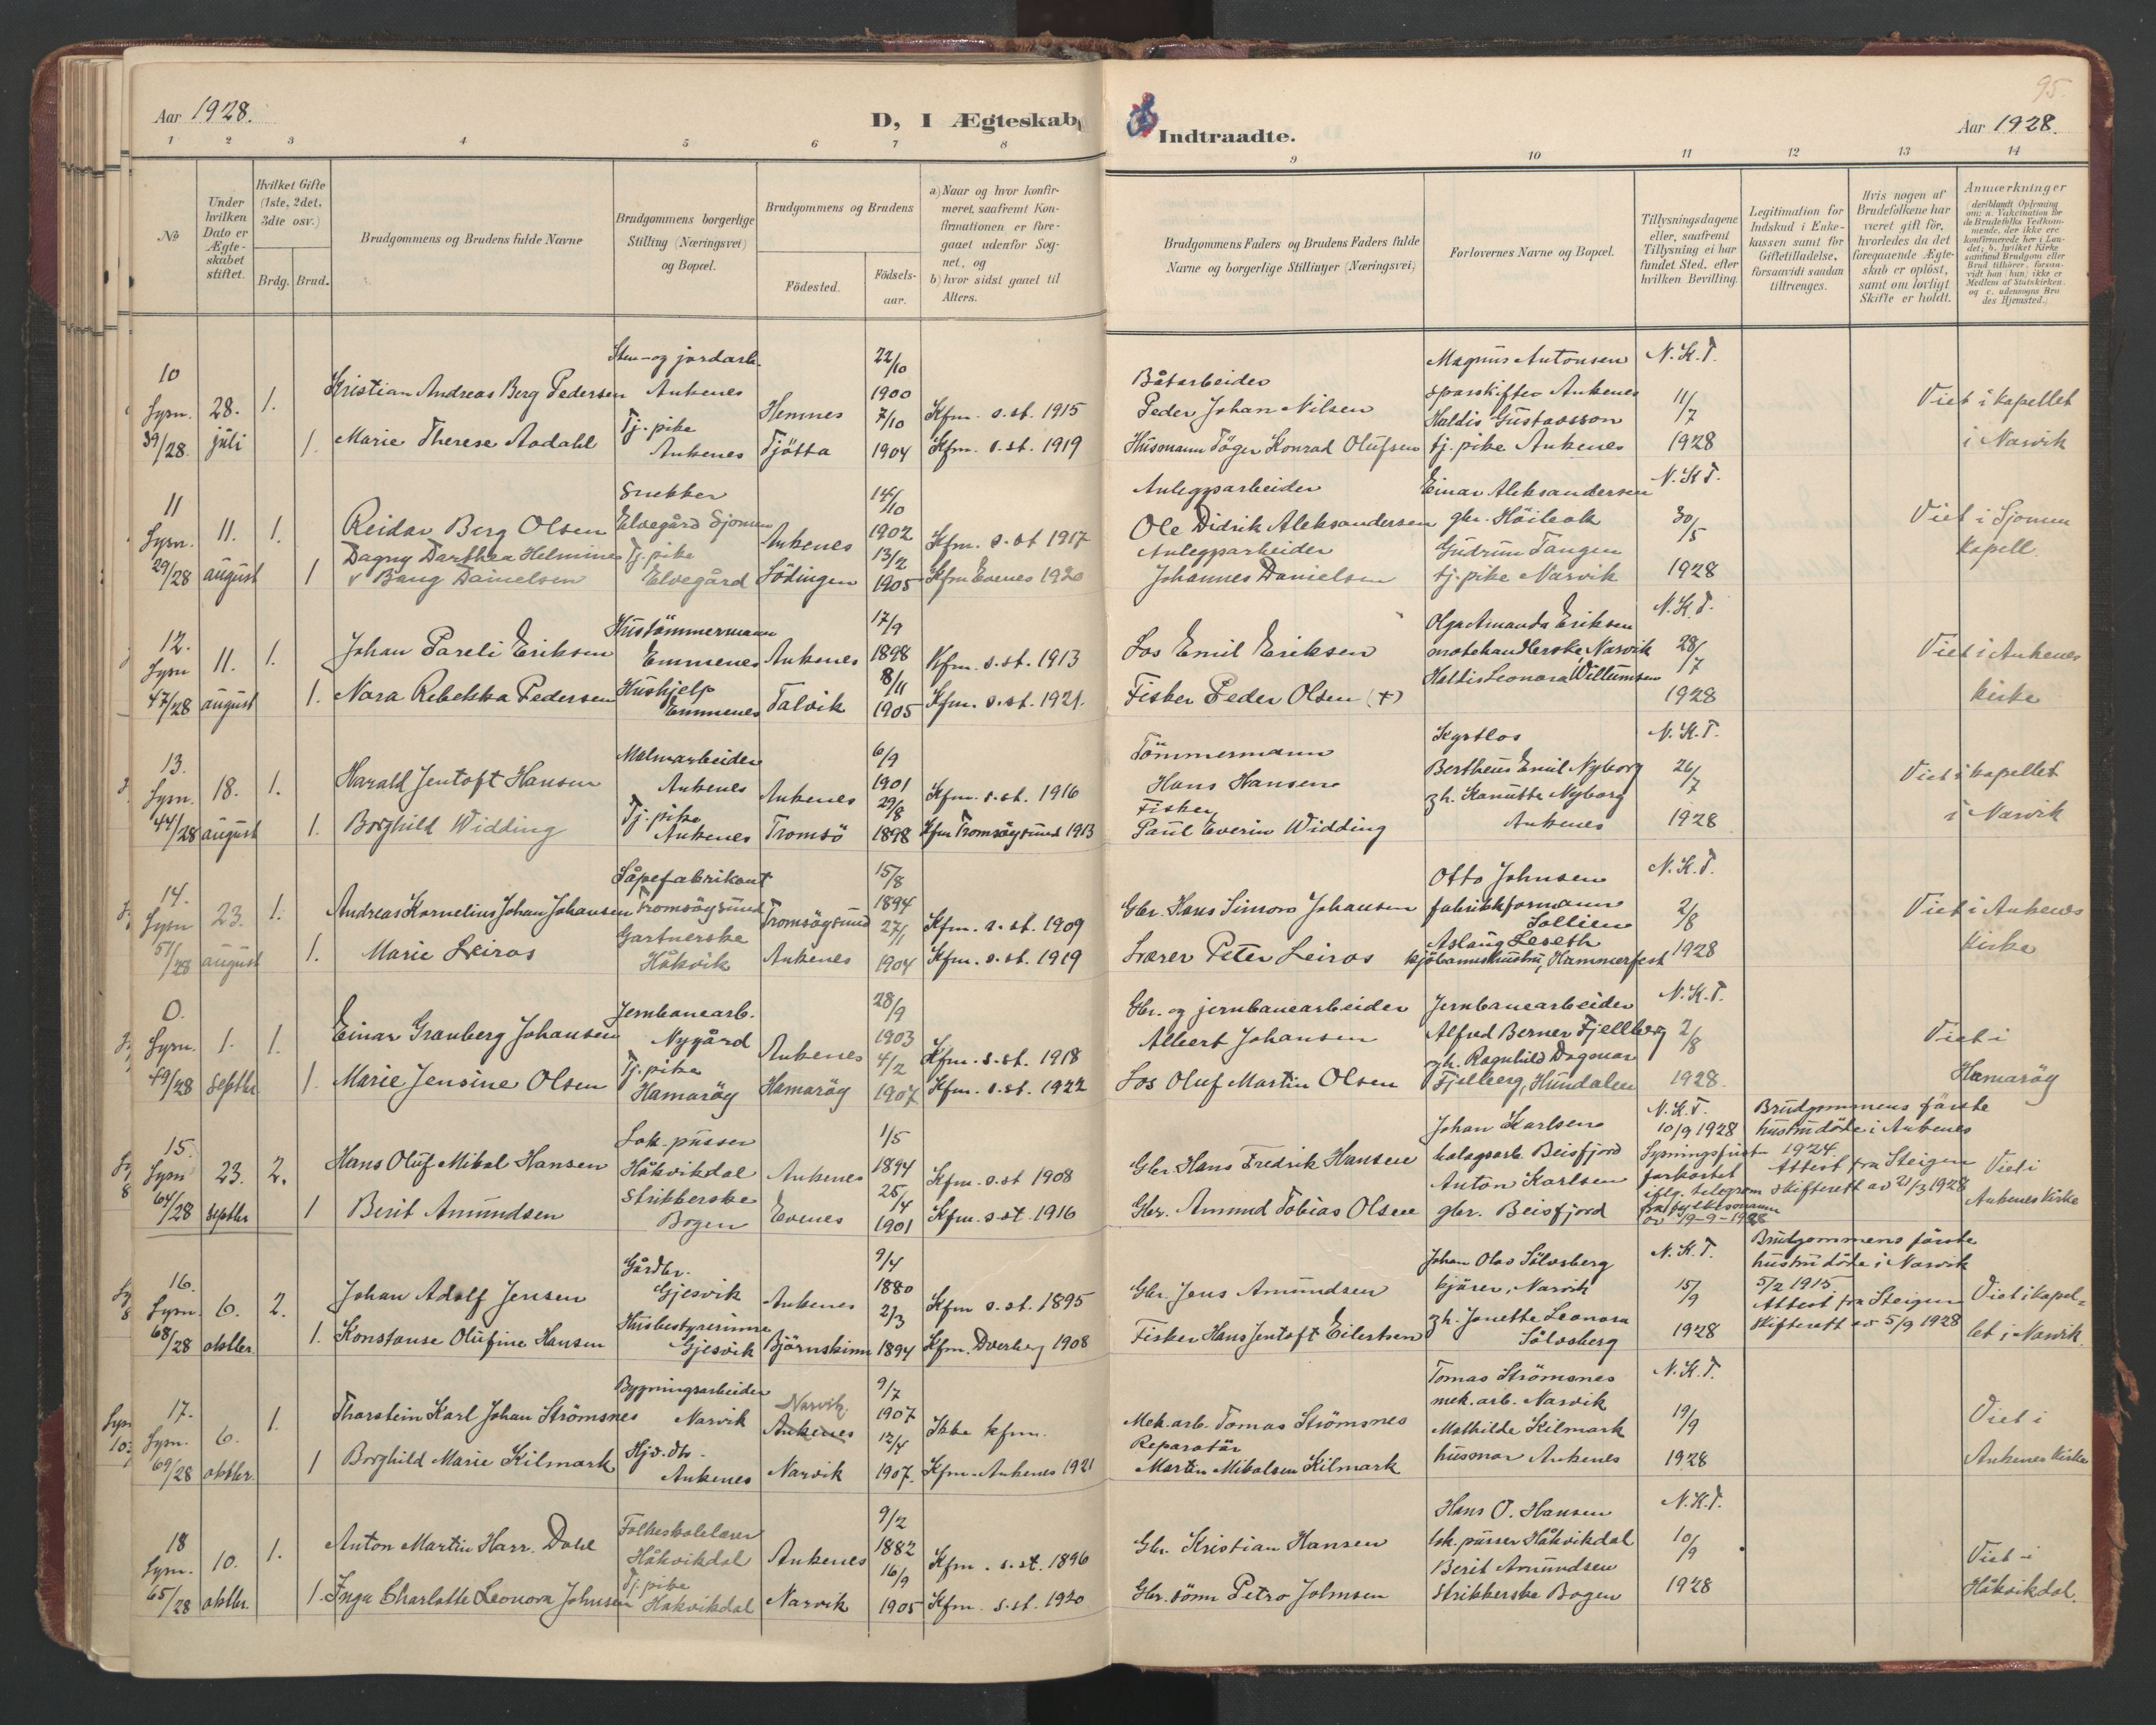 Aar 1928.
D, I Ægteskab
Indtraadte.
95.
Aar 1928.
1 2 3 4 5 6 7 8 9 10 11 12 13 14
No
Under hvilken Dato er Ægteskabet stiftet.
Hvilket Gifte (1ste, 2det, 3die osv.)
Brdg. Brud.
Brudgommens og Brudens fulde Navne
Brudgommens borgerlige Stilling (Næringsvei) og Bopæl.
Brudgommens og Brudens
Födested.
Födselsaar.
a) Naar og hvor konfirmeret, saafremt Konfirmationen er foregaaet udenfor Sognet, og
b) hvor sidst gaaet til Alters.
Brudgommens Faders og Brudens Faders fulde Navne og borgerlige Stillinger (Næringsvei)
Forlovernes Navne og Bopæl.
Tillysningsdagene eller, saafremt Tillysning ei har fundet Sted, efter hvilken Bevilling.
Legitimation for Indskud i Enkekassen samt for Giftetilladelse, forsaavidt saadan tiltrænges.
Hvis nogen af Brudefolkene har været gift för, hvorledes da det foregaaende Ægteskab er oplöst, samt om lovligt Skifte er holdt.
Anmærkninger
10 Lysn. 39/28 28. juli 1. 1.
Kristian Andreas Berg Pedersen
Marie Therese Aadahl
Sten- og jordarb. Ankenes
Tj. pike Ankenes
Hemnes
Tjötta
22/10 1900
7/10 1904
Kfm. s. st. 1915
Kfm. s. st. 1919
Båtarbeider
Peder Johan Nilsen
Husmann Töger Konrad Olufsen
Magnus Antonsen
sporskifter Ankenes
Haldis Gustavsson
tj. pike Ankenes
N. K. T. 11/7 1928
Viet i kapellet i Narvik
11 Lysn. 29/28 11. august 1. 1
Reidar Berg Olsen
Dagny Darthea Helmine
v Bang Danielsen
Snekker
Elvegård Sjomen
Tj. pike
Elvegård
Ankenes
Lödingen
14/10 1902
13/2 1905
Kfm. s. st 1917
Kfm Evenes 1920
Anleggsarbeider
Ole Didrik Aleksandersen
Anleggsarbeider
Johannes Danielsen
Einar Aleksandersen
gbr. Höibak
Gudrun Tangen
tj. pike Narvik
N. K T. 30/5 1928
Viet i Sjomen kapell
12. Lysn 47/28 11. august 1. 1.
Johan Pareli Eriksen
Nora Rebekka Pedersen
Hustömmermann
Emmenes
Hushjelp
Emmenes
Ankenes
Talvik
17/9 1898
8/11 1905
Kfm. s. st. 1913
Kfm. s. st. 1921.
Los Emil Eriksen
Fisker Peder Olsen (+)
Olga Amanda Eriksen
motehandlerske, Narvik
Haldis Leonora Willumsen
N. K. T. 28/7 1928
Viet i Ankenes kirke
13. Lysn. 44/28 18. august 1. 1.
Harald Jentoft Hansen
Borghild Widding
Malmarbeider
Ankenes
Tj. pike
Ankenes
Ankenes
Tromsö
6/9 1901
29/8 1898
Kfm. s. st. 1916
Kfm Tromsöysund 1913
Tömmermann
Hans Hansen
Fisker
Paul Everin Widding
Kystlos
Bertheus Emil Nyborg
og h. Kanutte Nyborg
Ankenes
N. K. T. 26/7 1928
Viet i kapellet i Narvik
14. Lysn 51/28 23. august 1. 1.
Andreas Kornelius Johan Johansen
Marie Leiros
Såpefabrikant
Tromsöysund
Gartnerske
Håkvik
Tromsöysund
Ankenes
15/8 1894
27/1 1904
Kfm. s. st. 1909
Kfm. s. st. 1919
Gbr. Hans Simon Johansen
Lærer Peter Leiros
Otto Johnsen
fabrikkformann
Sollien
Aslaug Leseth
kjöbmannshustru, Hammerfest
N. K. T. 2/8 1928
Viet i Ankenes kirke
0. Lysn. 49/28 1. septbr 1. 1.
Einar Granberg Johansen
Marie Jensine Olsen
Jernbanearb.
Nygård
Tj. pike
Hamaröy
Ankenes
Hamaröy
28/9 1903
4/2 1907
Kfm. s. st. 1918
Kfm. s. st. 1922
Gbr. og jernbanearbeider
Albert Johansen
Los Oluf Martin Olsen
Jernbanearbeider
Alfred Berner Fjellberg
og h. Ragnhild Dagmar
Fjelberg, Hundalen
N. K. T. 2/8 1928.
Viet i Hamaröy
15. Lysn 64/28 23. septbr 2. 1
Hans Oluf Mikal Hansen
Berit Amundsen
Lok. pusser
Håkvikdal
Strikkerske
Bogen
Ankenes
Evenes
1/5 1894
25/4 1901
Kfm. s. st 1908
Kfm. s. st 1916
Gbr. Hans Fredrik Hansen
Gbr. Amund Tobias Olsen
Johan Karlsen
Beisfjord
Anton Karlsen
gbr. Beisfjord
N. K. T. 10/9 1928
Lysningsfrist forkortet
iflg. telegram
fra fylkesmann
av 19-9-1928
Brudgommens förste
hustru döde i Ankenes
1924.
Attest fra Steigen
skifterett av 21/3 1928
Viet i Ankenes kirke
16. Lysn. 68/28 6. oktbr. 2. 1.
Johan Adolf Jensen
Konstanse Olufine Hansen
Gårdbr.
Gjesvik
Husbestyrerinne
Gjesvik
Ankenes
Björnskinn
9/4 1880
2/3 1894
Kfm s. st. 1895
Kfm. Dverberg 1908
Gbr. Jens Amundsen
Fisker Hans Jentoft Eilertsen
Johan Olav Sölvsberg
kjörer, Narvik
og h. Janette Leonora
Sölvsberg
N. K. T. 15/9 1928
Brudgommens förste
hustru döde i Narvik
5/2 1915.
Attest fra Steigen
Skifterett av 5/9 1928
Viet i kapellet i Narvik.
17. Lysn. 69/28 6. oktbr. 1. 1
Thorstein Karl Johan Strömsnes
Borghild Marie Kilmark
Bygningsarbeider
Narvik
Hjv. dtr.
Ankenes
Narvik.
Ankenes
Narvik
9/7 1907
12/4 1907.
Ikke kfm.
Kfm. Ankenes 1921
Mek. arb. Tomas Strömsnes
Reparatör
Martin Mikalsen Kilmark
Tomas Strömsnes
mek. arb. Narvik
Mathilde Kilmark
husmor Ankenes
N. K. T. 19/9 1928
Viet i Ankenes kirke
18 Lysn. 65/28 10. oktbr. 1. 1.
Anton Martin Harr. Dahl
Inga Charlotte Leonora Johnsen
Folkeskolelærer
Håkvikdal
Tj. pike
Håkvikdal
Ankenes
Narvik
9/2 1882
16/9 1905
Kfm. s. st. 1896
Kfm. s. st. 1920
Gbr. Kristian Hansen
Gbr. sönn Petro Johnsen
Hans O. Hansen
lok. pusser Håkvikdal
Berit Amundsen
Strikkerske Bogen
N. K. T. 10/9 1928
Viet i Håkvikdal.